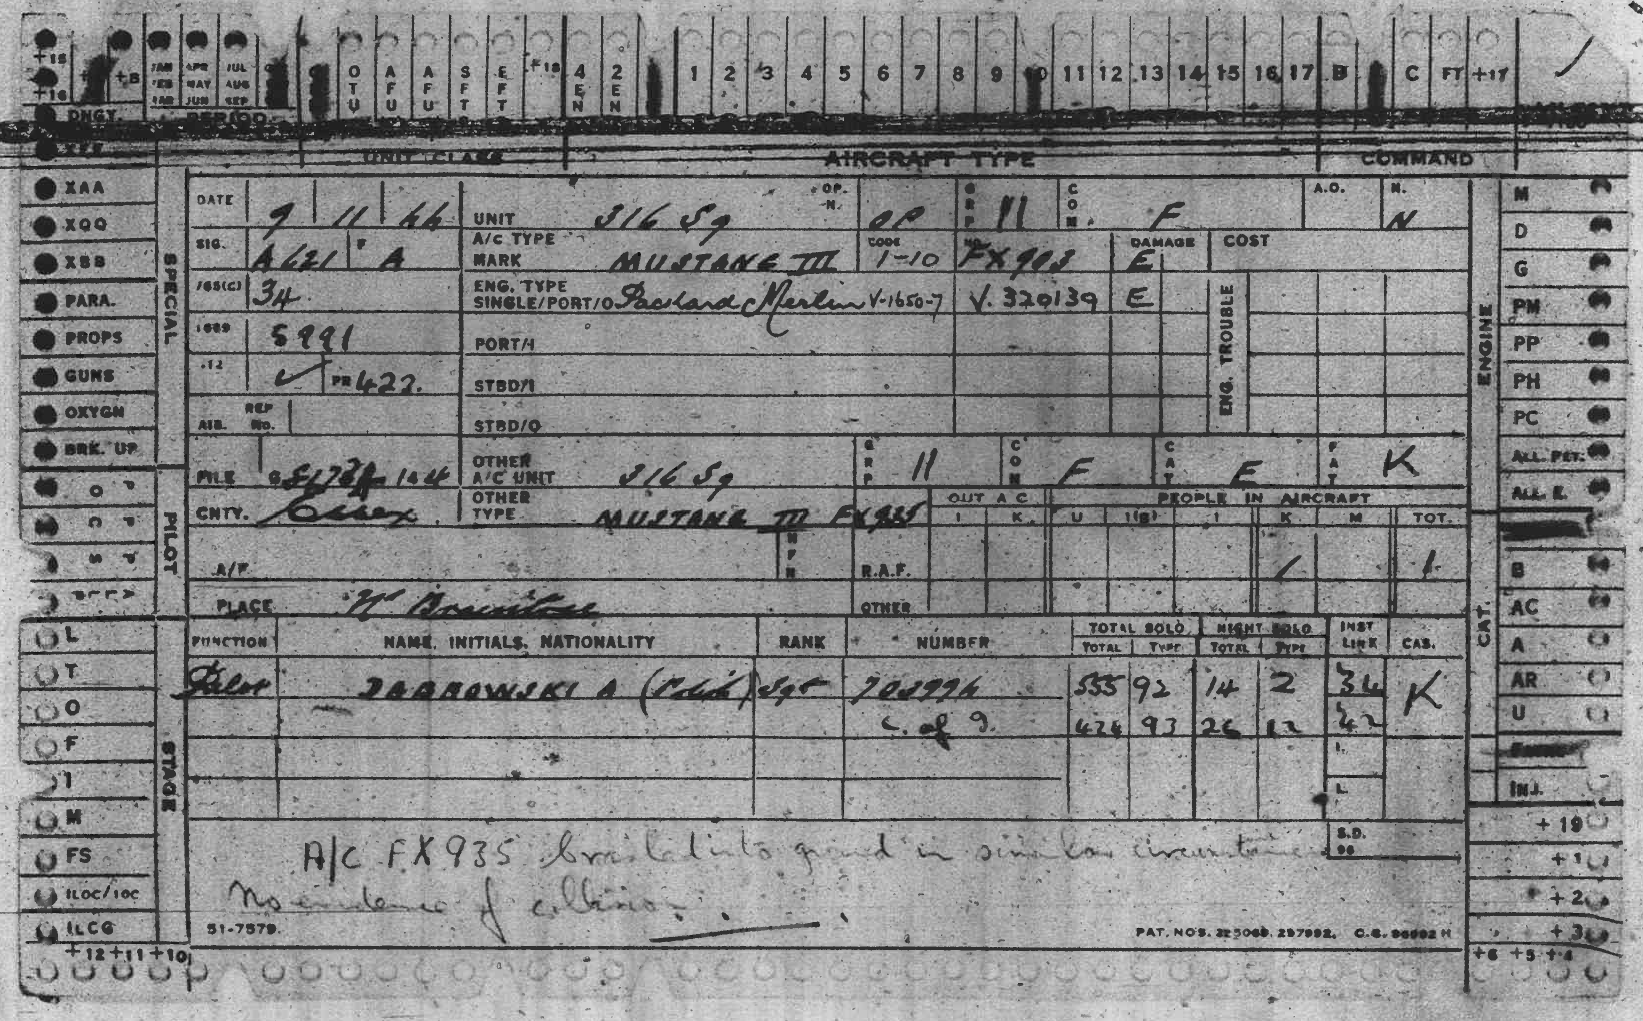 +18 +16 +8 JAN FEB MAR APR MAY JUN JUL AUG SEP OTU AFU AFU SFT EFT +18 4 EN 2 EN 1 2 3 4 5 6 7 8 9 10 11 12 13 14 15 16 17 B C FT +17
DNGY. PERIOD
UNIT CLASS AIRCRAFT TYPE COMMAND
XAA
XQQ
XBB
PARA.
PROPS
GUNS
OXYGN
BRK. UP
SPECIAL
PILOT
L
T
O
F
I
M
FS
ILOC/IOC
ILCG
STAGE
+12 +11 +10
DATE 9 11 44 UNIT 316 Sq OP. N. OP GRP 11 COM. F A.O. N. N
SIG. A621 F A A/C TYPE MARK MUSTANG III CODE 1-10 NO. FX 903 DAMAGE E COST
765(C) 34 ENG. TYPE SINGLE/PORT/O Packard Merlin V-1650-7 V. 320139 E ENG. TROUBLE
1669 5991 PORT/I
.12 ✓ PR 422. STBD/I
AIB. REP No. STBD/O
FILE OTHER A/C UNIT 316 Sq GRP 11 COM F CAT E FAT K
CNTY. Essex OTHER TYPE MUSTANG III FX 935 OUT A C PEOPLE IN AIRCRAFT
I K U I(S) I K M TOT.
A/F R.A.F. 1 1
PLACE Nr Braintree OTHER
FUNCTION NAME, INITIALS, NATIONALITY RANK NUMBER TOTAL SOLO NIGHT SOLO INST LINK CAS.
TOTAL TYPE TOTAL TYPE
Pilot DABROWSKI A (Polish) Sgt 703996 555 92 14 2 34 K
C. of I. 424 93 26 12 42
A/C FX935 crashed into ground in similar circumstances
No evidence of collision.
S.D. 96
51-7579. PAT. NOS. 325068. 297992.
M
D
G
PM
PP
PH
PC
ALL. PET.
ALL. E.
ENGINE
B
AC
A
AR
U
INJ.
CAT.
+19
+1
+2
+3
+6 +5 +4